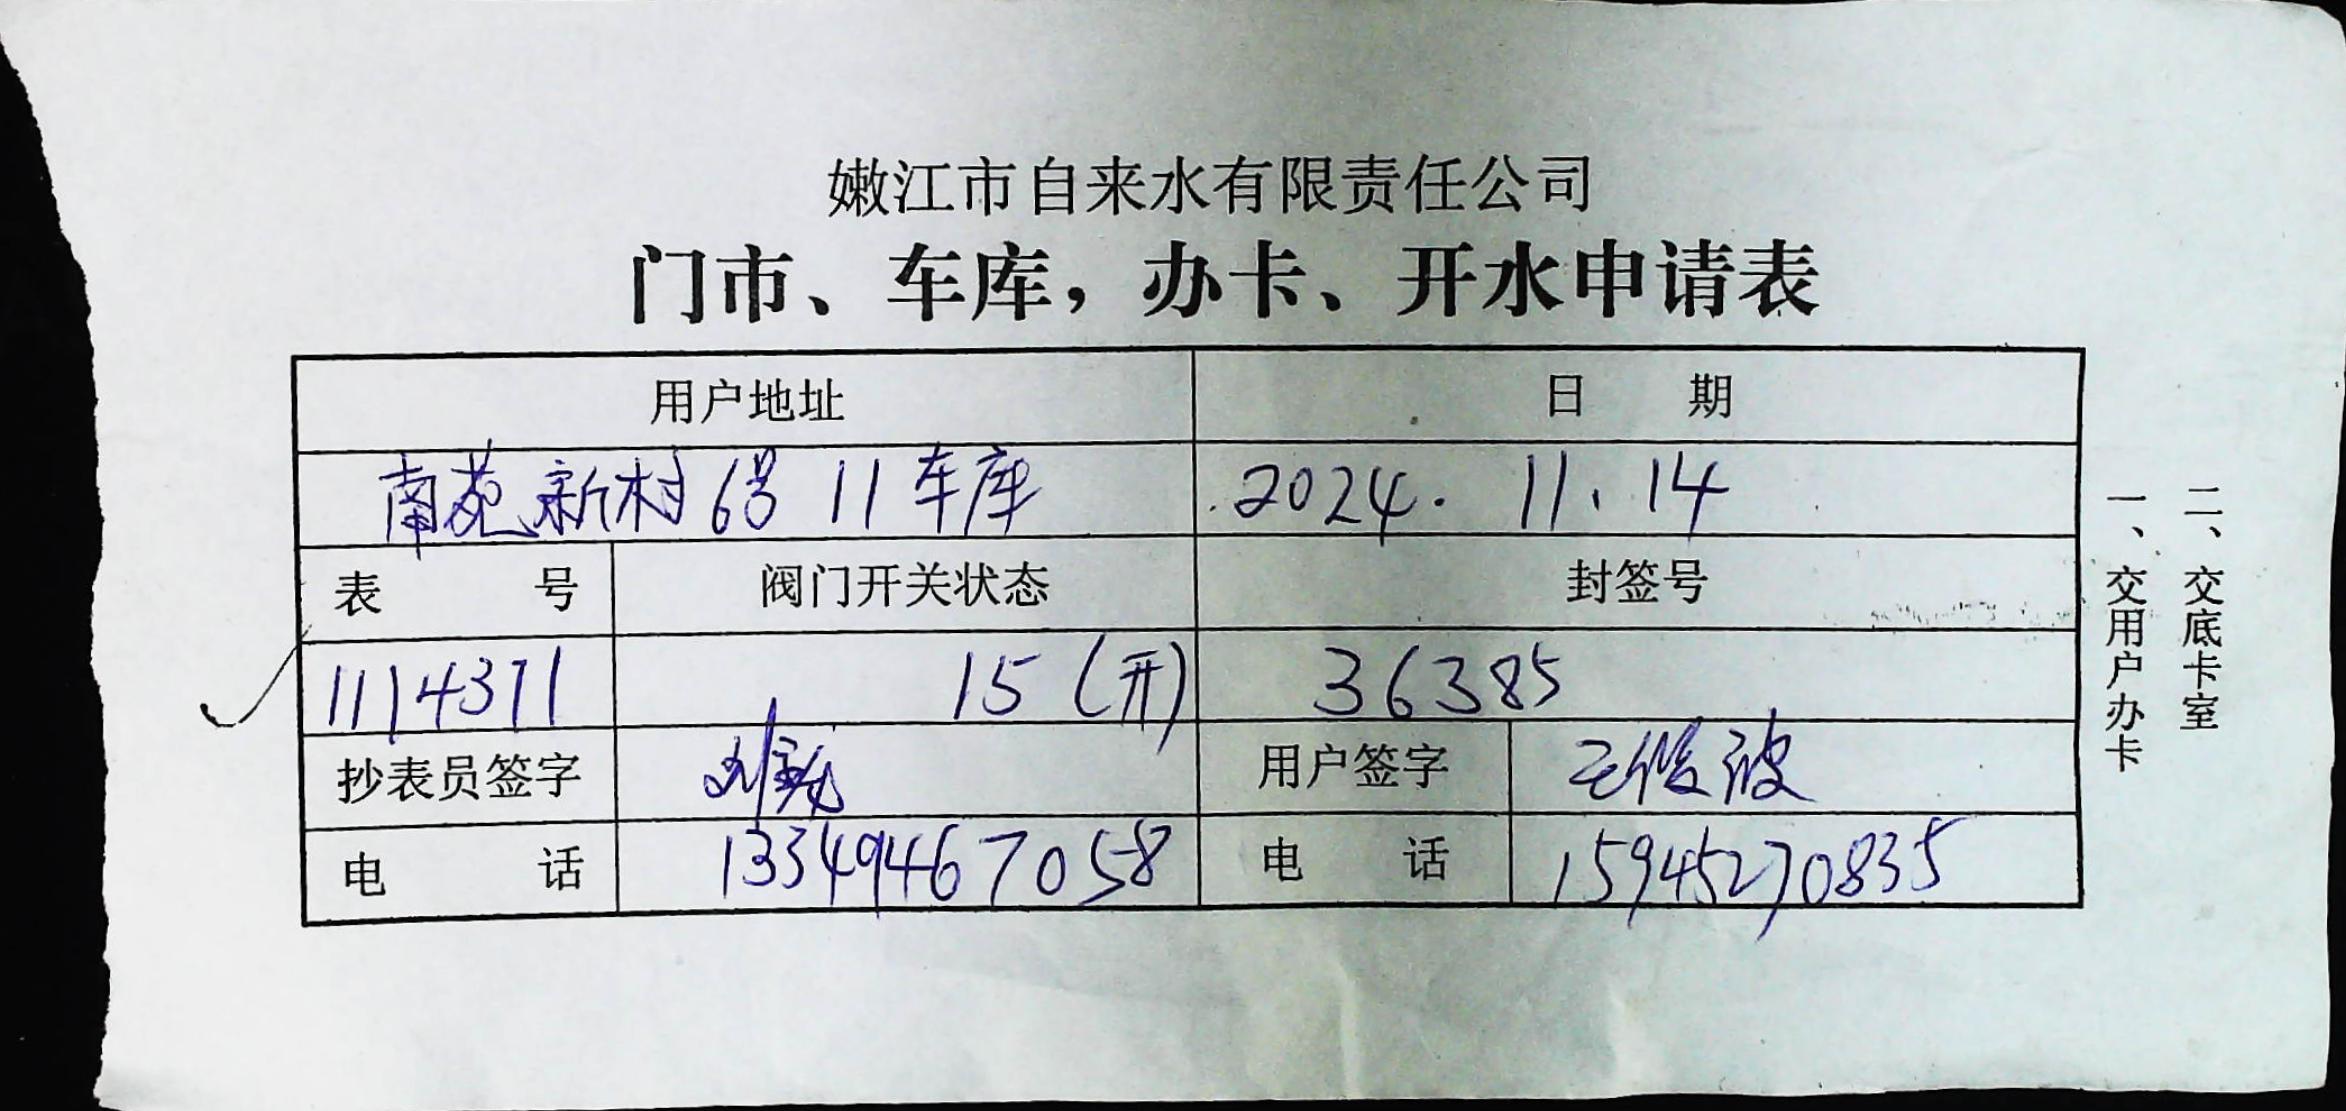 嫩江市自来水有限责任公司
门市、车库，办卡、开水申请表
用户地址 日 期
南苑新村6号 11车库 2024. 11. 14
表 号 阀门开关状态 封签号
1114371 15（开） 36385
抄表员签字 刘 用户签字 王俊波
电 话 13349467058 电 话 15945270835
一、交用户办卡
二、交底卡室